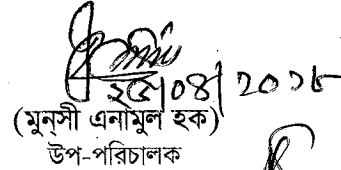 ২৫|০৪|২০১৮
(মুন্সী এনামুল হক)
উপ-পরিচালক